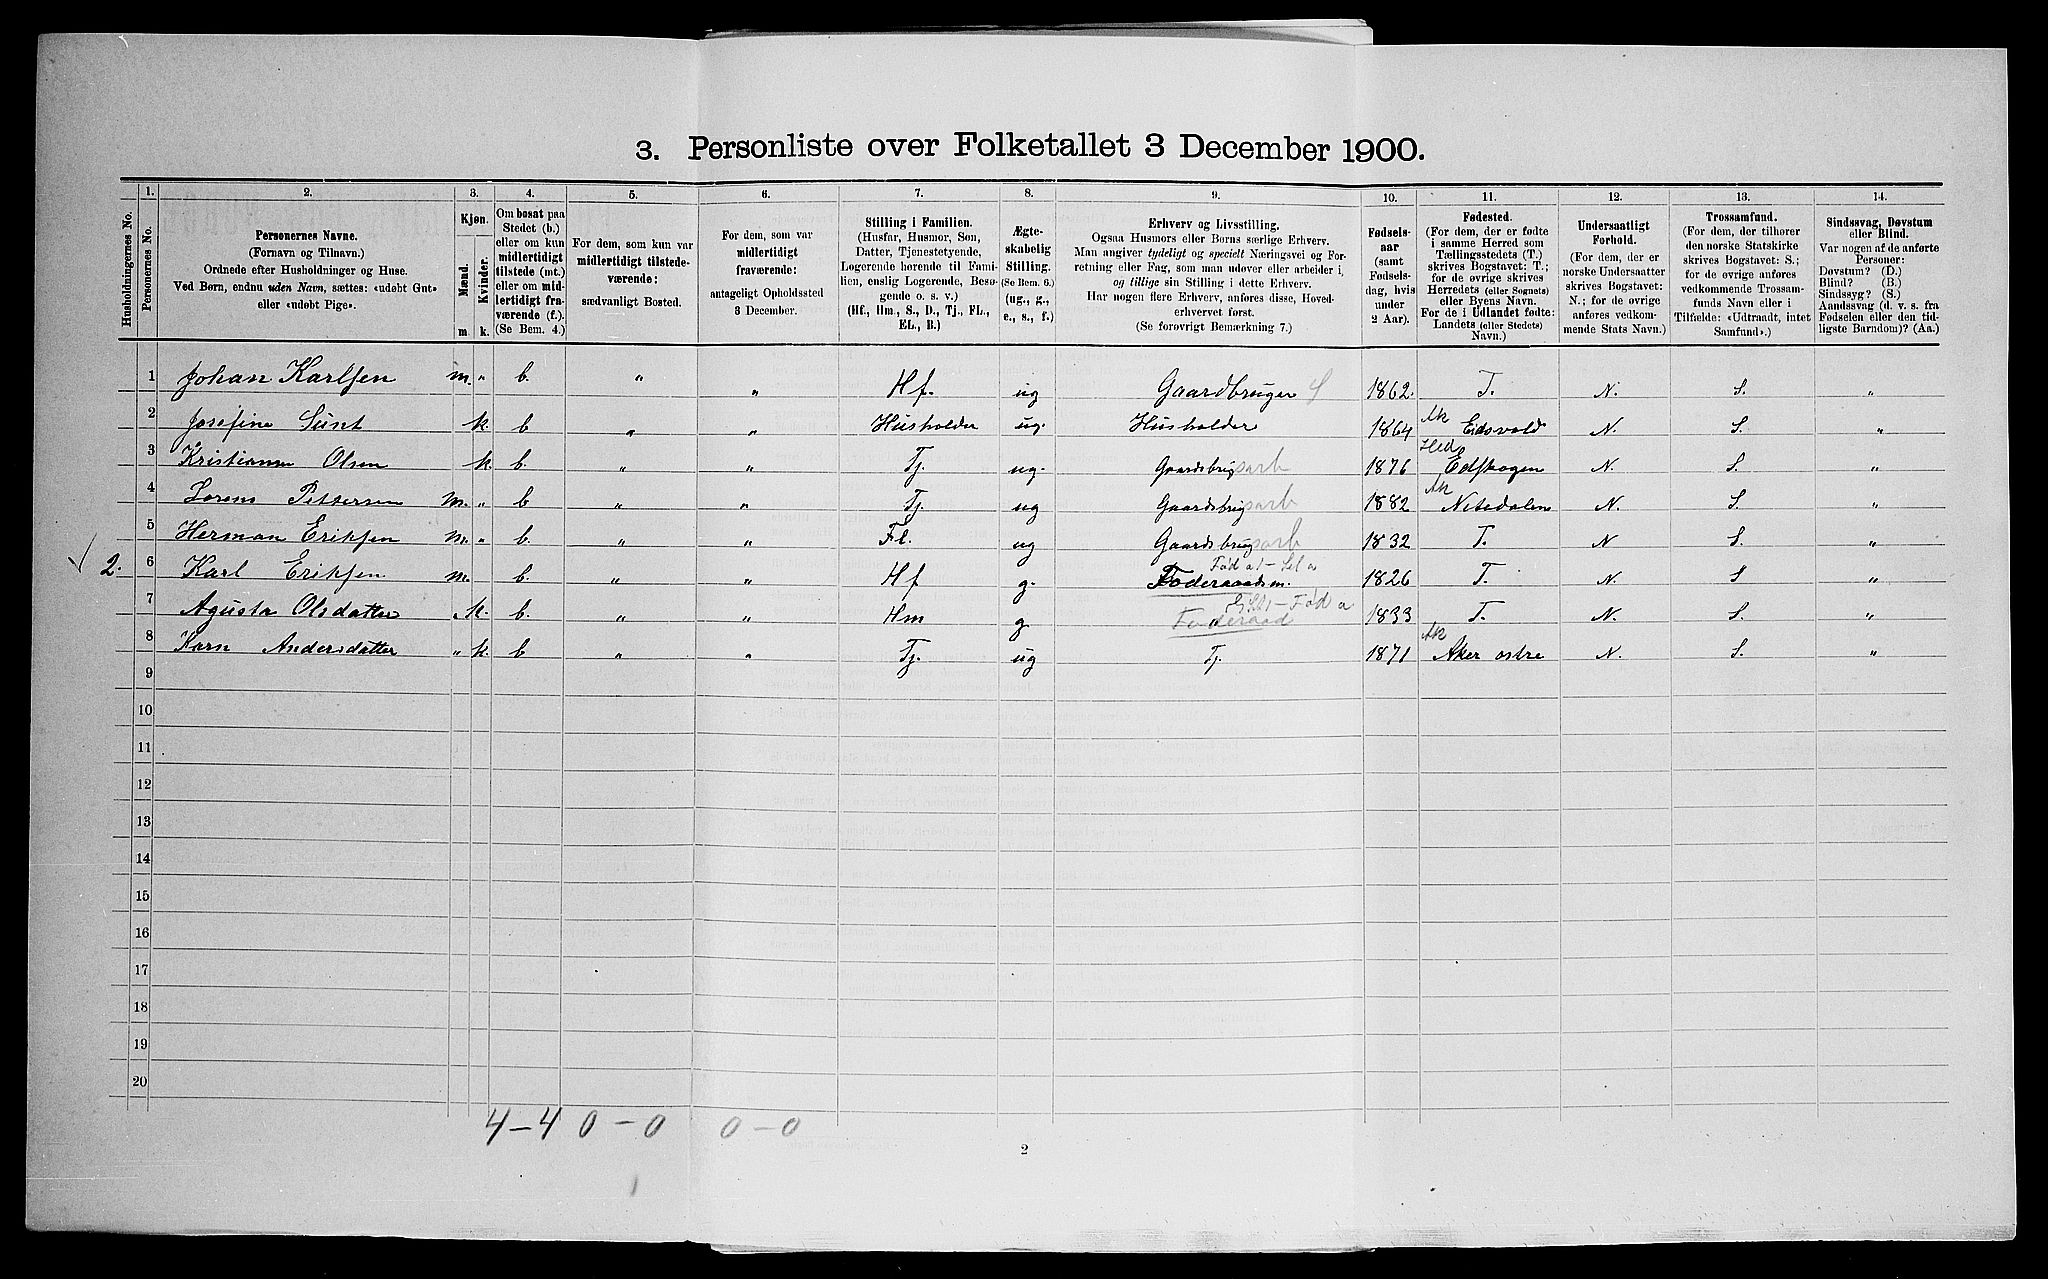 3. Personliste over Folketallet 3 December 1900.
1. 2. 3. 4. 5. 6. 7. 8. 9. 10. 11. 12. 13. 14.
Husholdningernes No.
Personernes No.
Personernes Navne.
(Fornavn og Tilnavn.)
Ordnede efter Husholdninger og Huse.
Ved Børn, endnu uden Navn, sættes: «udøbt Gut»
eller «udøbt Pige».
Kjøn.
Mænd.
Kvinder.
m. k.
Om bosat paa
Stedet (b.)
eller om kun
midlertidigt
tilstede (mt.)
eller om mid-
lertidigt fra-
værende (f.).
(Se Bem. 4.)
For dem, som kun var
midlertidigt tilstede-
værende:
sædvanligt Bosted.
For dem, som var
midlertidigt
fraværende:
antageligt Opholdssted
3 December.
Stilling i Familien.
(Husfar, Husmor, Søn,
Datter, Tjenestetyende,
Logerende hørende til Fami-
lien, enslig Logerende, Besø-
gende o. s. v.)
(Hf., Hm., S., D., Tj., FL.,
EL., B.)
Ægte-
skabelig
Stilling.
(Se Bem. 6.)
(ug., g.,
e., s., f.)
Erhverv og Livsstilling.
Ogsaa Husmors eller Børns særlige Erhverv.
Man angiver tydeligt og specielt Næringsvei og For-
retning eller Fag, som man udøver eller arbeider i,
og tillige sin Stilling i dette Erhverv.
Har nogen flere Erhverv, anføres disse, Hoved-
erhvervet først.
(Se forøvrigt Bemærkning 7.)
Fødsels-
aar
(samt
Fødsels-
dag, hvis
under
2 Aar).
Fødested.
(For dem, der er fødte
i samme Herred som
Tællingsstedets (T.)
skrives Bogstavet: T.;
for de øvrige skrives
Herredets (eller Sognets)
eller Byens Navn.
For de i Udlandet fødte:
Landets (eller Stedets)
Navn.)
Undersaatligt
Forhold.
(For dem, der er
norske Undersaatter
skrives Bogstavet:
N.; for de øvrige
anføres vedkom-
mende Stats Navn.)
Trossamfund.
(For dem, der tilhører
den norske Statskirke
skrives Bogstavet: S.;
for de øvrige anføres
vedkommende Trossam-
funds Navn eller i
Tilfælde: «Udtraadt, intet
Samfund».)
Sindssvag, Døvstum
eller Blind.
Var nogen af de anførte
Personer:
Døvstum? (D.)
Blind? (B.)
Sindssyg? (S.)
Aandssvag (d. v. s. fra
Fødselen eller den tid-
ligste Barndom)? (Aa.)
1 Johan Karlsen m. " b. " " Hf. ug Gaardbruger S 1862. T. N. S. "
2 Josefine Sunt k. b " " Husholder ug. Husholder 1864 Ak Eidsvold N. S. "
3 Kristianne Olsen k. b. " " Tj. ug. Gaardsbrugsarb 1876 Hed Edskogen N. S. "
4 Lorens Pettersen m. " b. " " Tj. ug Gaardsbrugsarb 1882 Ak Nitedalen N. S. "
5 Herman Eriksen m. " b. " " Fl. ug Gaardsbrugsarb 1832 T. N S. "
2. 6 Karl Eriksen m. b. " " Hf g. Foderaadsm. 1826 T. N. S "
7 Agusta Olsdatter k. b. " " Hm g. Foderaad 1833 T. N. S. "
8 Karn Andersdatter " k. b " " Tj. ug Tj. 1871 Ak Aker østre N. S. "
9
10
11
12
13
14
15
16
17
18
19
20
4 - 4 0 - 0 0 - 0
2